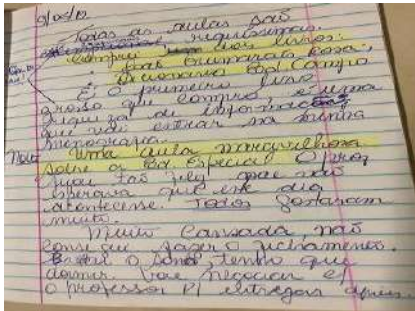 Todas as aulas são
requisitadas.
Comprei dois livros:
Dicionário do Campo
É o primeiro livro
grosso que compro e é uma
riqueza de informações
que vão entrar na minha
monografia.
Uma aula maravilhosa
sobre a Ed. Especial. O prof
ficou tão feliz que não
esperava que este dia
acontecesse. Todos gostaram
muito.
Muito cansada, não
consegui fazer o fichamento.
o sono, tenho que
dormir. Vou negociar c/
o professor p/ entregar depois.